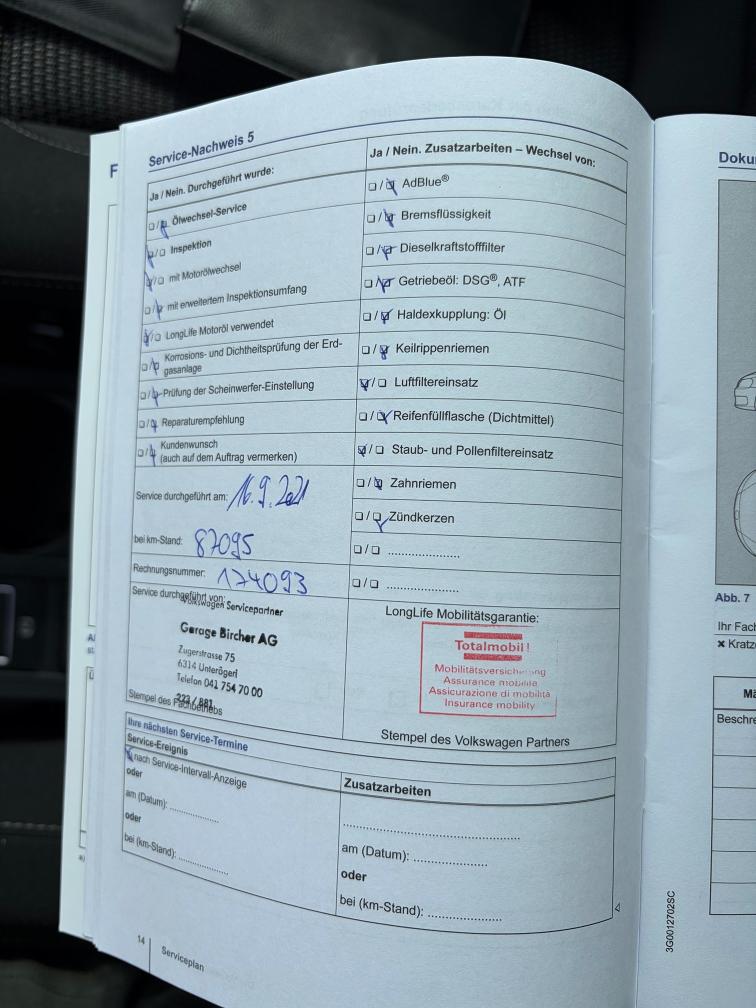 Service-Nachweis 5
Ja / Nein. Durchgeführt wurde:
❏/❏ Ölwechsel-Service
❏/❏ Inspektion
❏/❏ mit Motorölwechsel
❏/❏ mit erweitertem Inspektionsumfang
❏/❏ LongLife Motoröl verwendet
❏/❏ Korrosions- und Dichtheitsprüfung der Erd-
gasanlage
❏/❏ Prüfung der Scheinwerfer-Einstellung
❏/❏ Reparaturempfehlung
❏/❏ Kundenwunsch
(auch auf dem Auftrag vermerken)
Service durchgeführt am: 16.9.2021
bei km-Stand: 87095
Rechnungsnummer: 174093
Service durchgeführt von:
Volkswagen Servicepartner
Garage Bircher AG
Zugerstrasse 75
6314 Unterägeri
Telefon 041 754 70 00
223 / 881
Stempel des Fachbetriebs
Ja / Nein. Zusatzarbeiten – Wechsel von:
❏/❏ AdBlue®
❏/❏ Bremsflüssigkeit
❏/❏ Dieselkraftstofffilter
❏/❏ Getriebeöl: DSG®, ATF
❏/❏ Haldexkupplung: Öl
❏/❏ Keilrippenriemen
❏/❏ Luftfiltereinsatz
❏/❏ Reifenfüllflasche (Dichtmittel)
❏/❏ Staub- und Pollenfiltereinsatz
❏/❏ Zahnriemen
❏/❏ Zündkerzen
❏/❏ ....................
❏/❏ ....................
LongLife Mobilitätsgarantie:
Totalmobil!
Mobilitätsversicherung
Assurance mobilité
Assicurazione di mobilità
Insurance mobility
Stempel des Volkswagen Partners
Ihre nächsten Service-Termine
Service-Ereignis
nach Service-Intervall-Anzeige
oder
am (Datum): ..............
oder
bei (km-Stand): ..............
Zusatzarbeiten
..................................................
am (Datum): .....................
oder
bei (km-Stand): .....................
14
Serviceplan
F
Doku
Abb. 7
Ihr Fach
✖ Kratz
Mä
Beschre
3G0012702SC